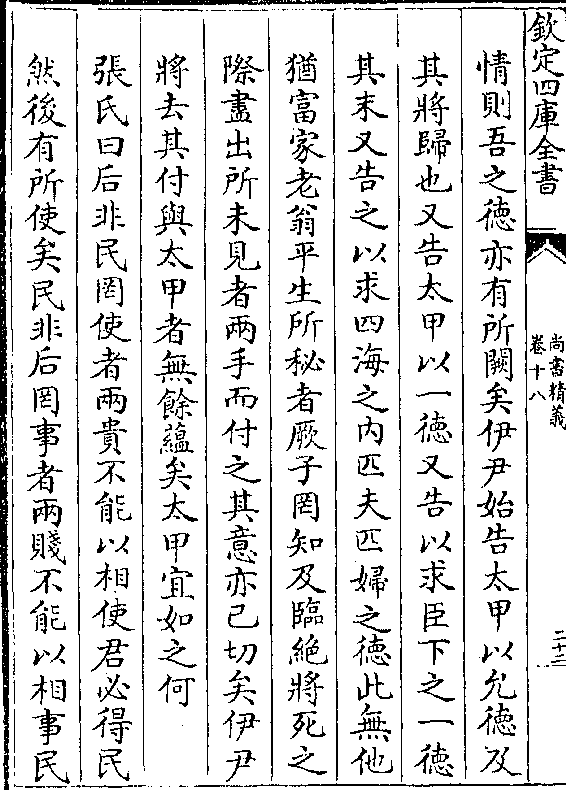 欽定四庫全書
尚書精義
卷十八
二十二
情則吾之德亦有所闕矣伊尹始告太甲以允德及
其將歸也又告太甲以一德又告以求臣下之一德
其末又告之以求四海之内匹夫匹婦之德此無他
猶富家老翁平生所秘者厥子罔知及臨絶將死之
際盡出所未見者兩手而付之其意亦已切矣伊尹
將去其付與太甲者無餘藴矣太甲宜如之何
張氏曰后非民罔使者兩貴不能以相使君必得民
然後有所使矣民非后罔事者兩賤不能以相事民